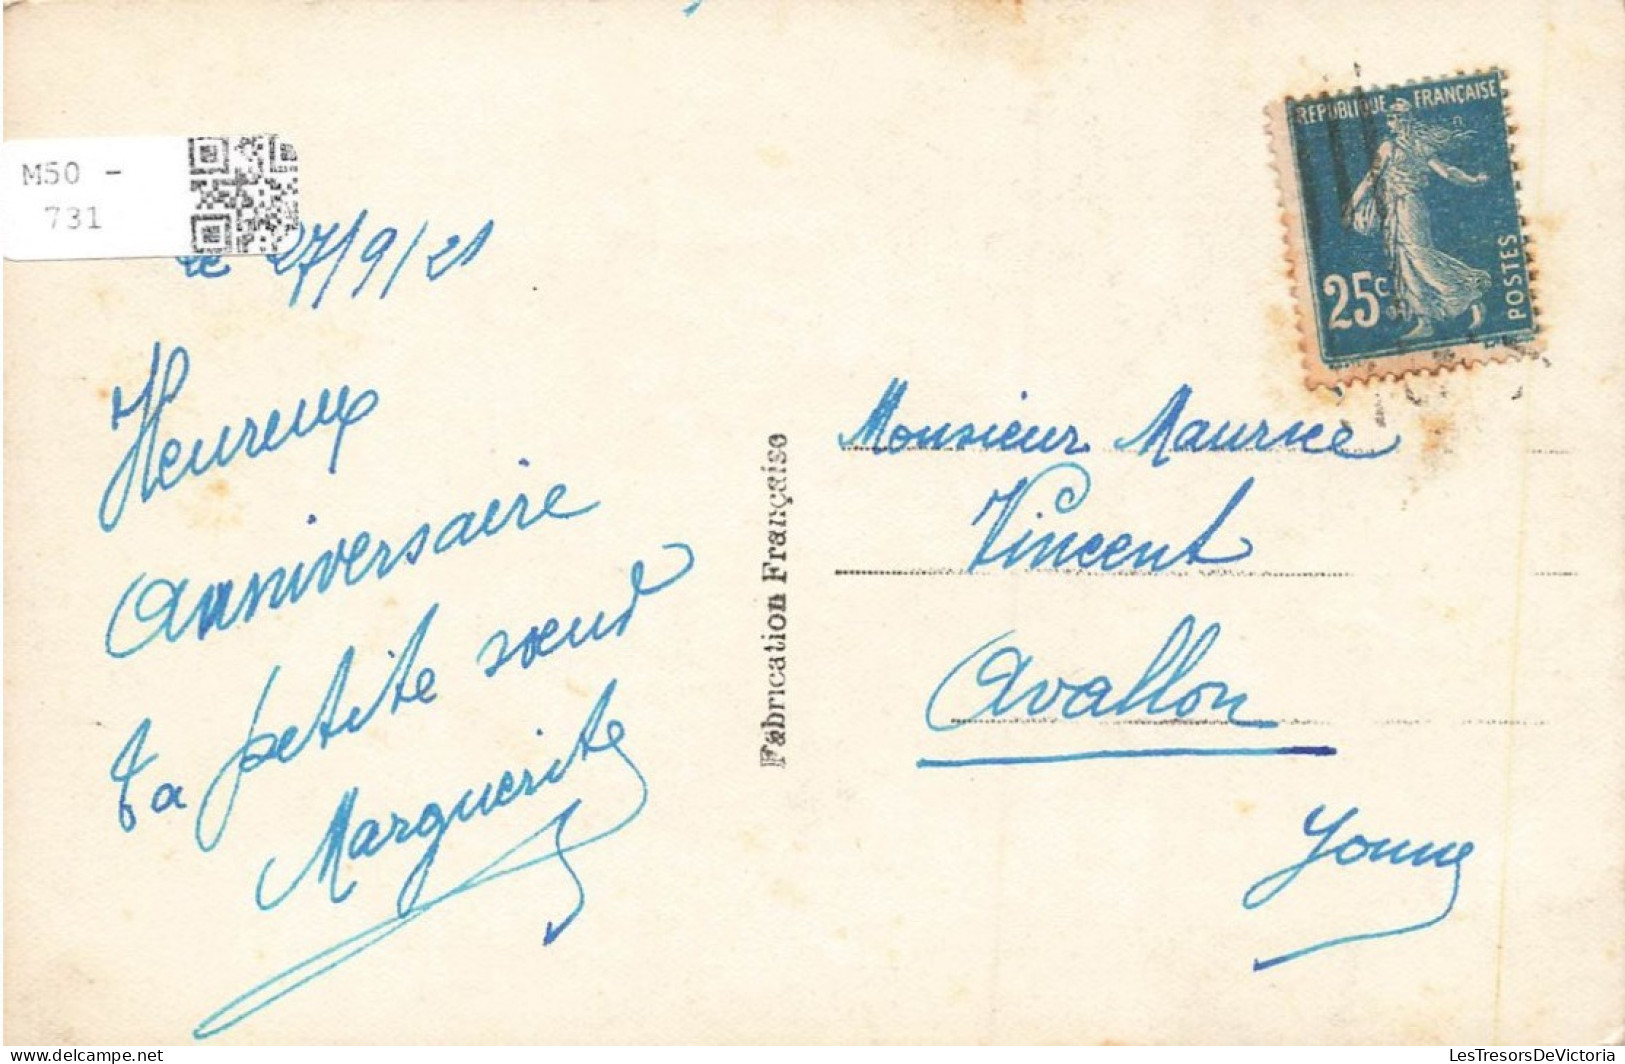 M50 -
731
le 27/9/21
Heureux
anniversaire
Ta petite soeur
Marguerite
Fabrication Française
REPUBLIQUE FRANÇAISE
25c
POSTES
Monsieur Maurice
Vincent
Avallon
Yonne
delcampe.net
LesTresorsDeVictoria